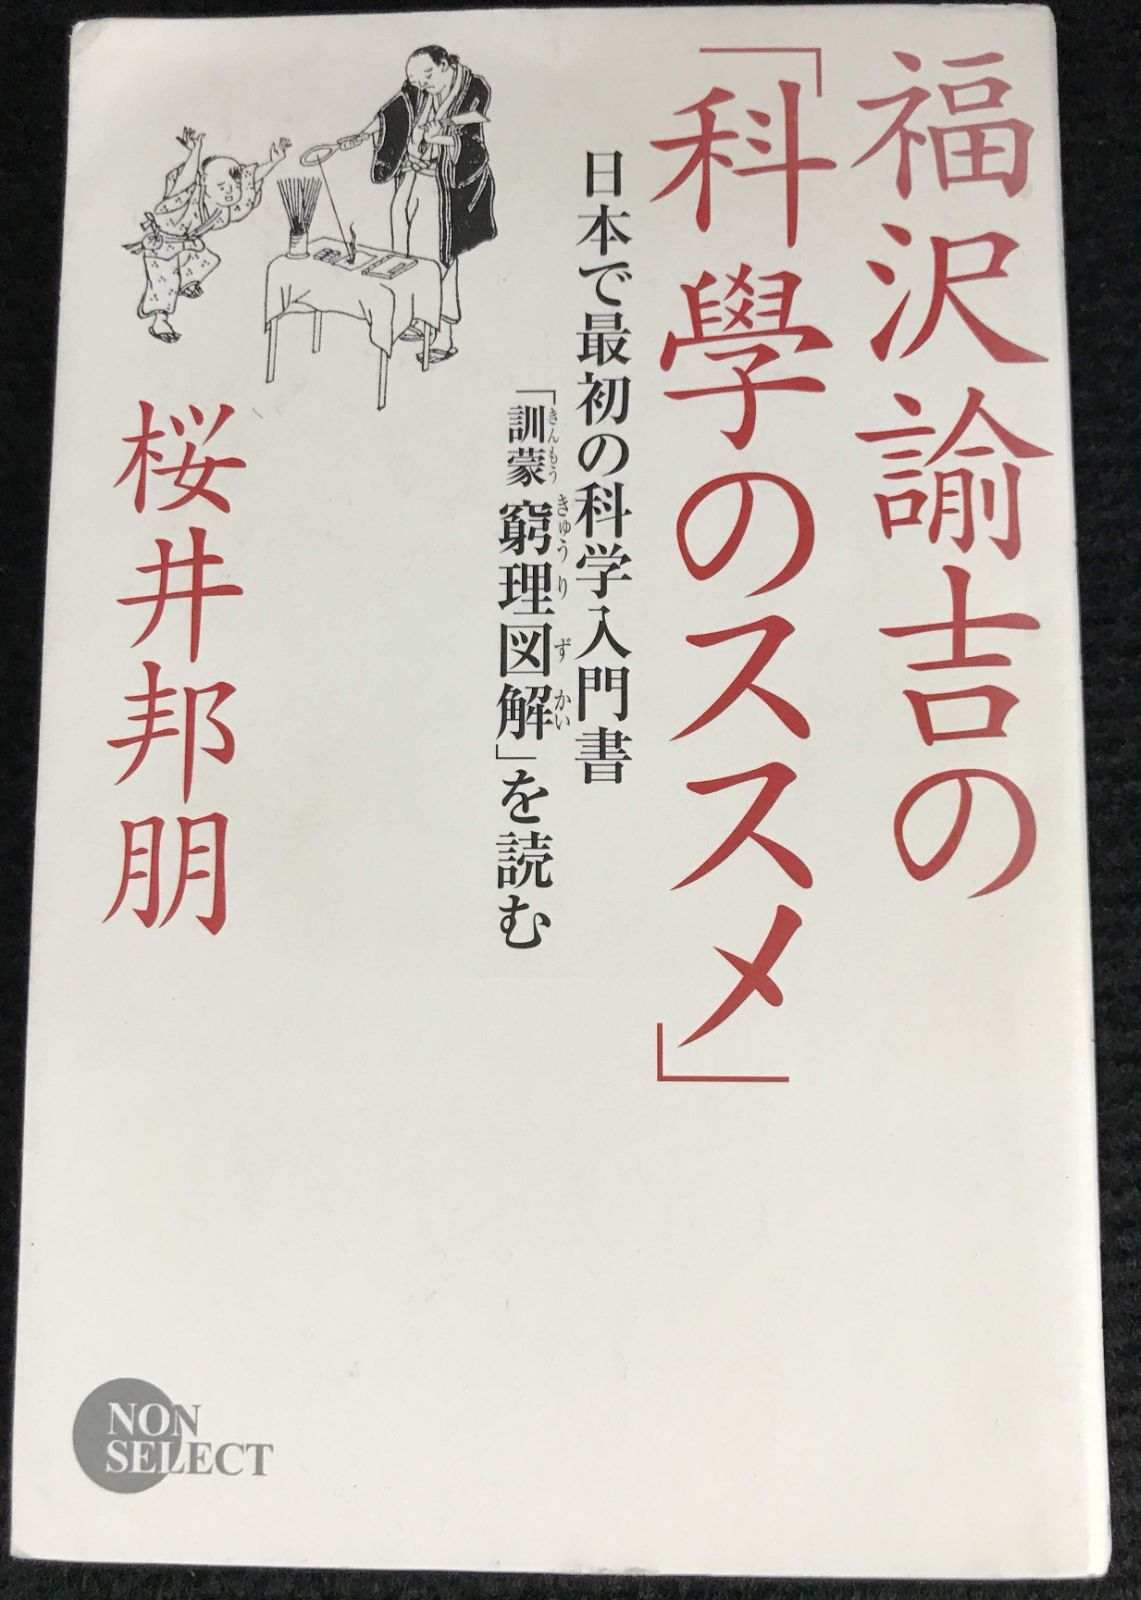 福沢諭吉の
「科學のススメ」
日本で最初の科学入門書
「訓蒙 窮理図解」を読む
きんもう きゅうり ずかい
桜井邦朋
NON
SELECT